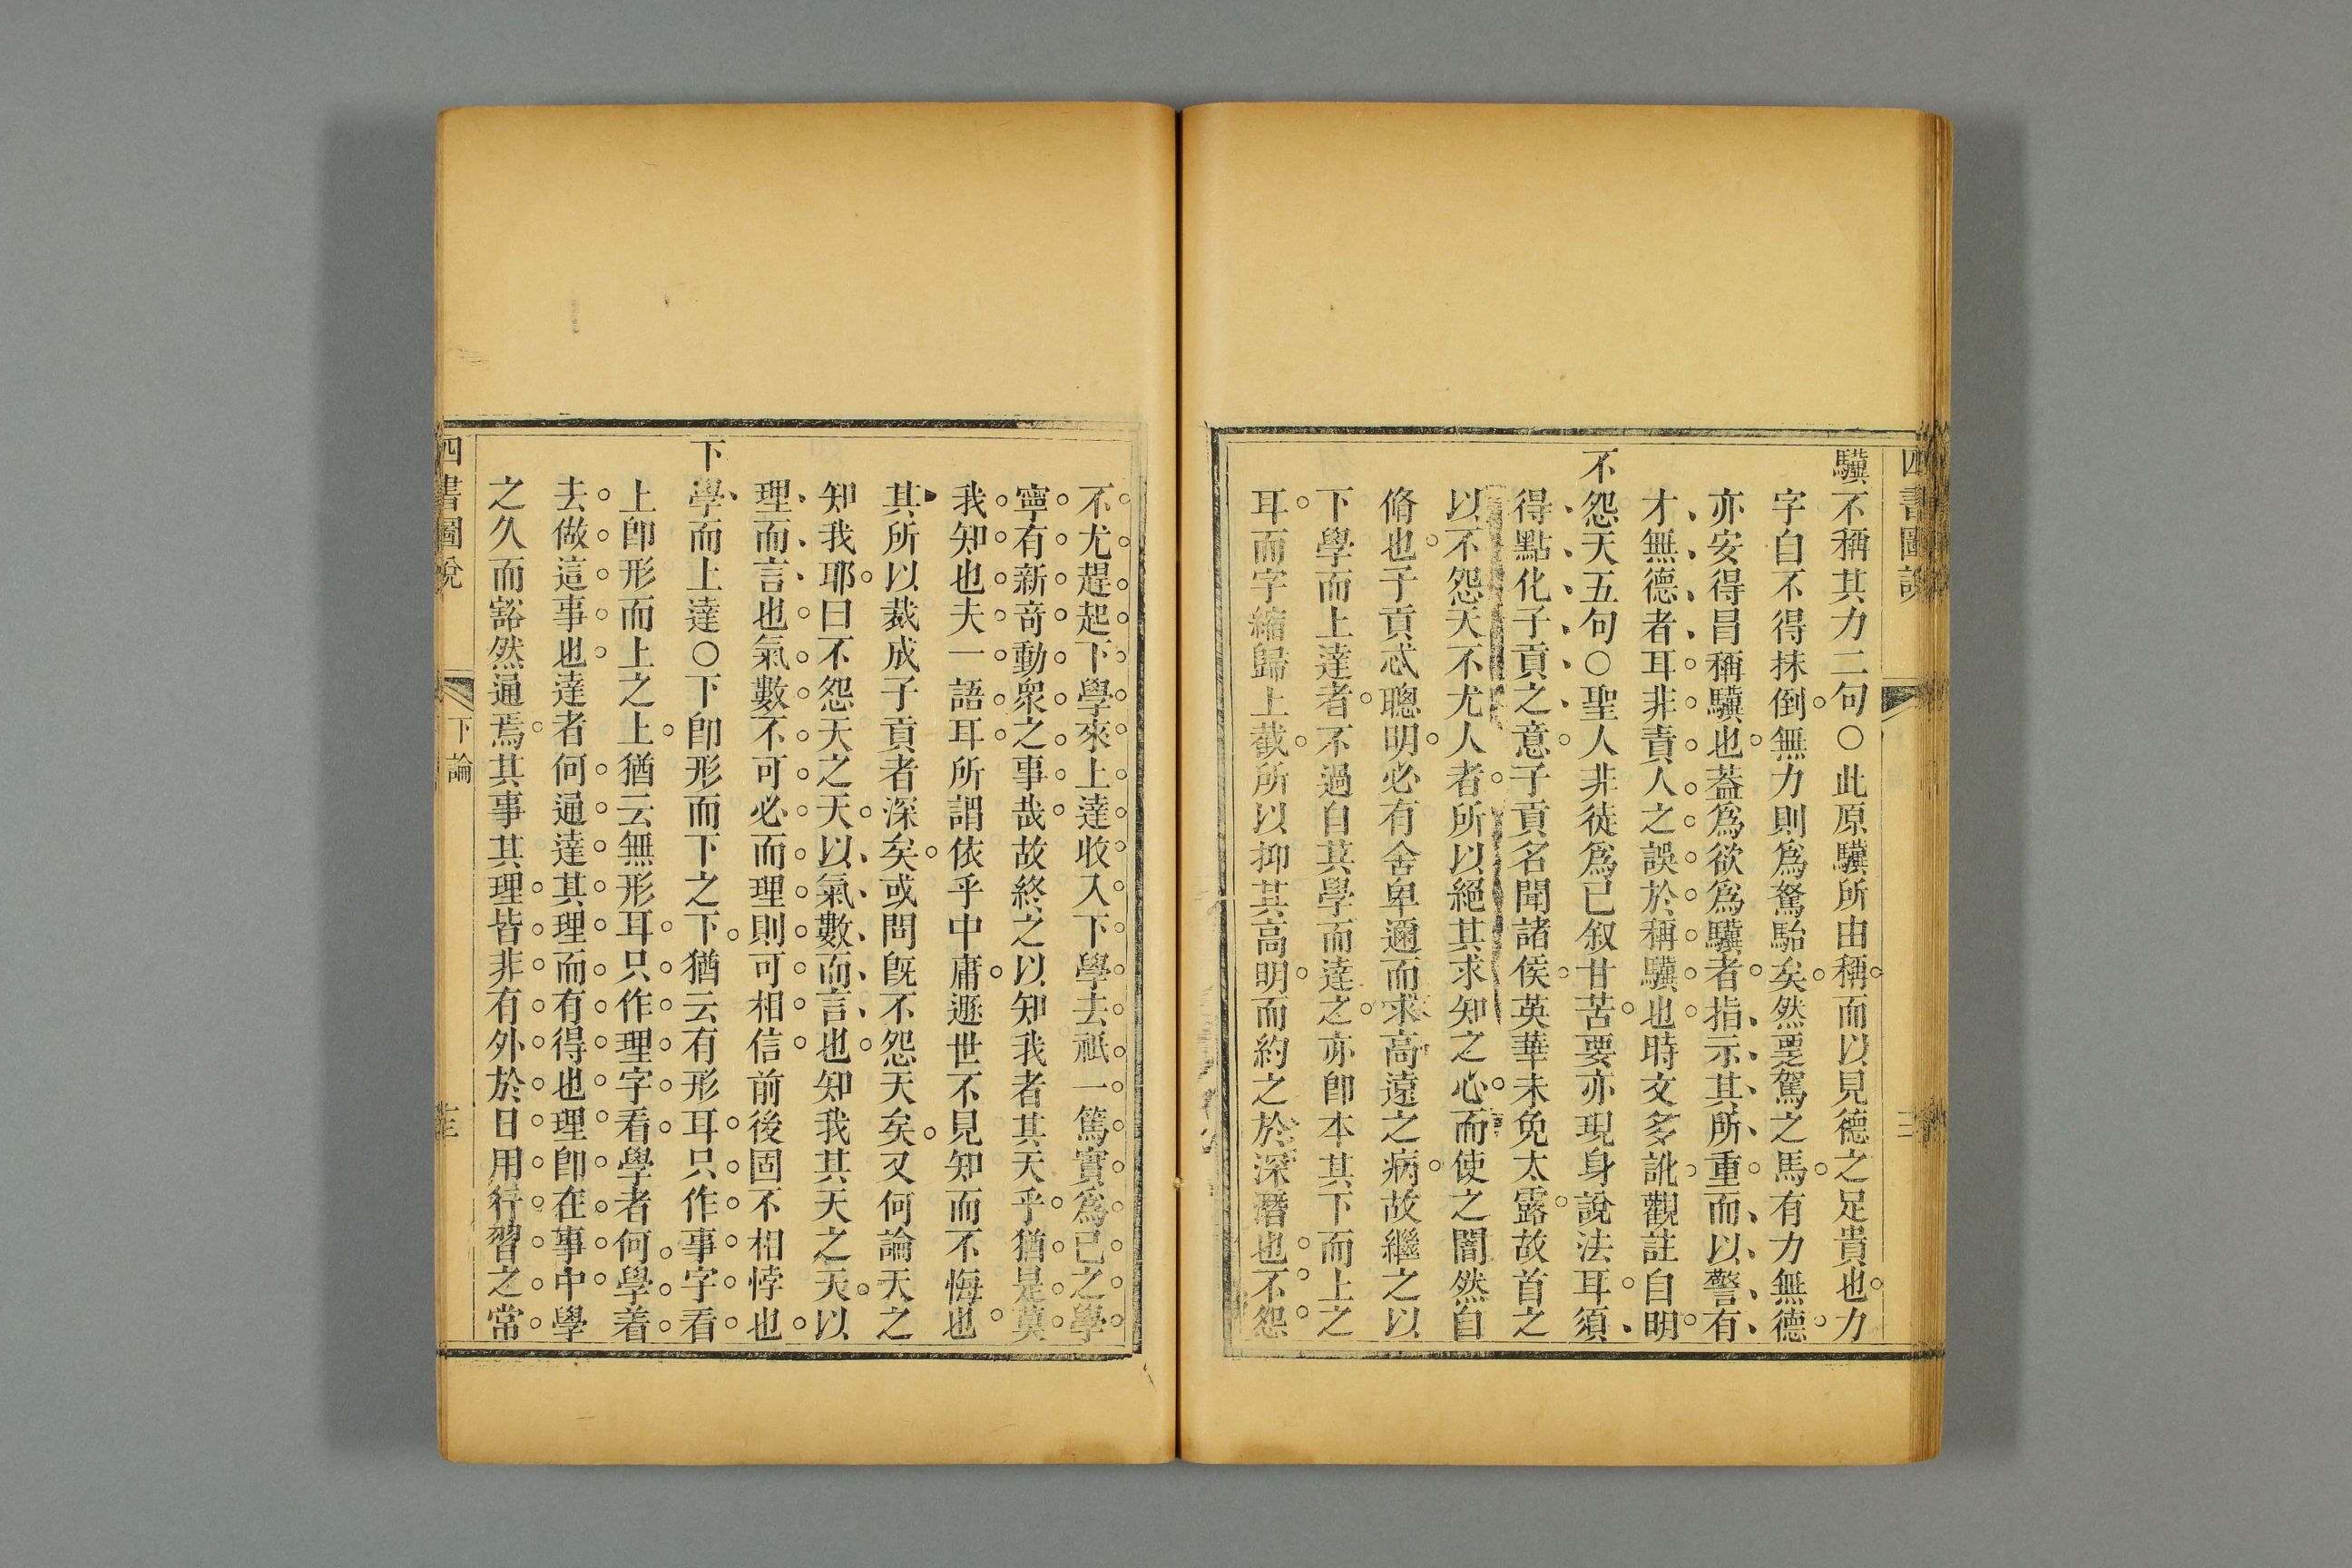 四書圖說
驥不稱其力二句〇此原驥所由稱而以見德之足貴也力
字自不得抹倒無力則為駑駘矣然覂駕之馬有力無德
亦安得昌稱驥也葢為欲為驥者指示其所重而以警有
才無德者耳非責人之誤於稱驥也時文多訛觀註自明
不怨天五句〇聖人非徒為已叙甘苦要亦現身說法耳須
得點化子貢之意子貢名聞諸侯英華未免太露故首之
以不怨天不尤人者所以絕其求知之心而使之闇然自
脩也子貢忒聰明必有舍卑邇而求高遠之病故繼之以
下學而上達者不過自其學而達之亦卽本其下而上之
耳而字縮歸上截所以抑其高明而約之於深潛也不怨
不尤趕起下學來上達收入下學去祇一篤實為已之學
寧有新竒動衆之事哉故終之以知我者其天乎猶是莫
我知也夫一語耳所謂依乎中庸遯世不見知而不悔也
其所以裁成子貢者深矣或問旣不怨天矣又何論天之
知我耶曰不怨天之天以氣數而言也知我其天之天以
理而言也氣數不可必而理則可相信前後固不相悖也
下學而上達〇下卽形而下之下猶云有形耳只作事字看
上卽形而上之上猶云無形耳只作理字看學者何學着
去做這事也達者何通達其理而有得也理卽在事中學
之久而豁然通焉其事其理皆非有外於日用行習之常
四書圖說
下論